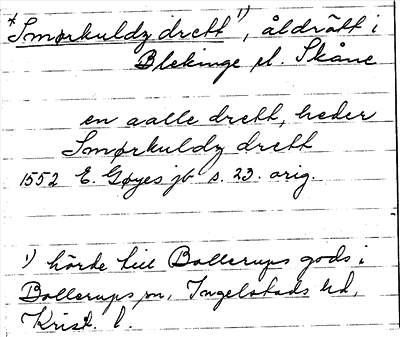 *Smørkuldz drett ¹⁾, åldrätt i
Blekinge el. Skåne
en aalle drett, heder
Smørkuldz drett
1552 E. Gøyes jb s. 23. orig.
¹⁾ hörde till Bollerups gods i
Bollerups sn, Ingelstads hd,
Krist. l.